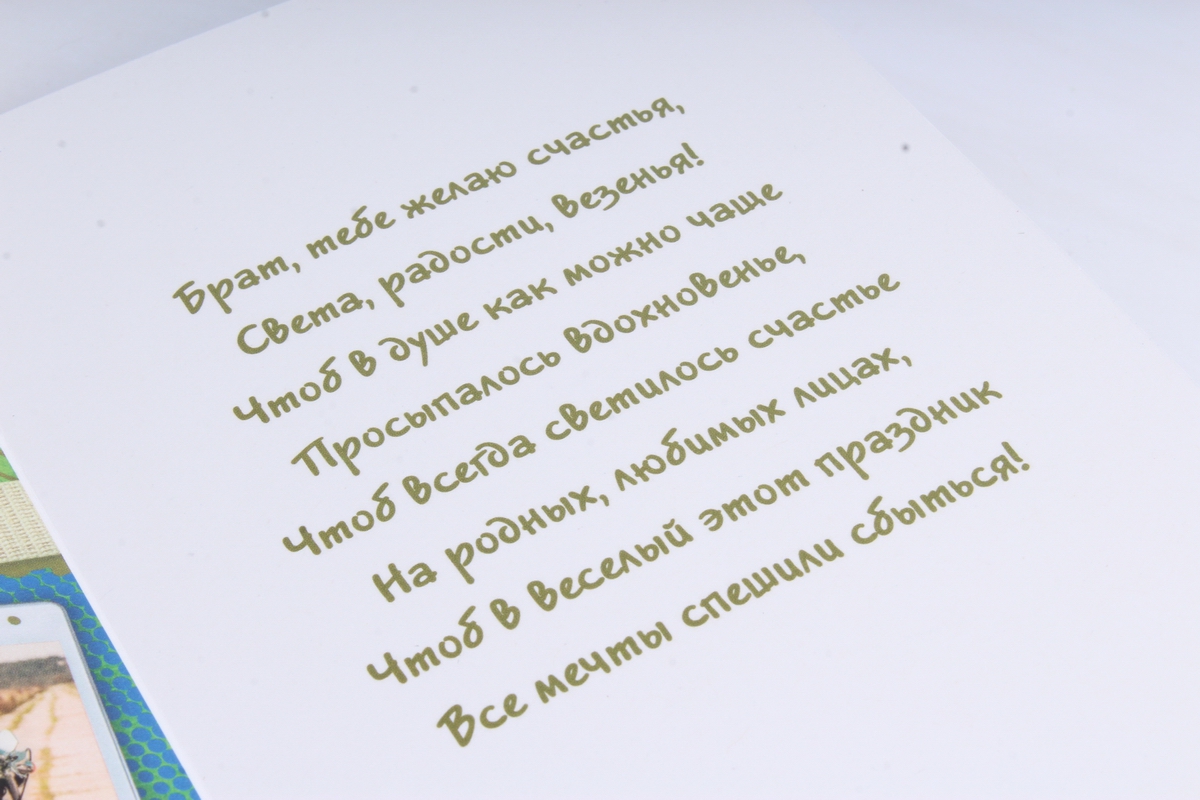 Брат, тебе желаю счастья,
Света, радости, везенья!
Чтоб в душе как можно чаще
Просыпалось вдохновенье,
Чтоб всегда светилось счастье
На родных, любимых лицах,
Чтоб в веселый этот праздник
Все мечты спешили сбыться!